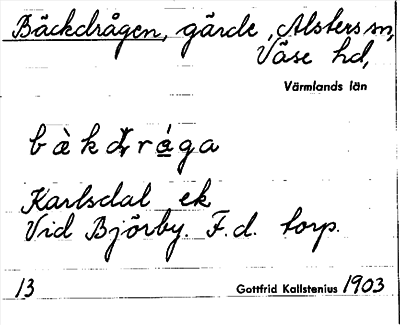 Bäckdrågen, gärde, Alsters sn,
Väse hd,
Värmlands län
bàkdråga
Karlsdal ek
Vid Björby. F.d. torp.
13 Gottfrid Kallstenius 1903